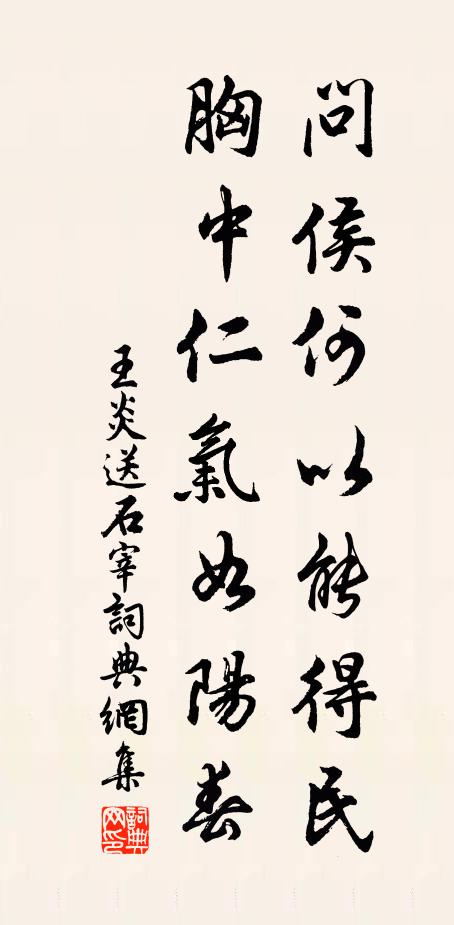 問侯何以能得民
胸中仁氣如陽春
王炎送石宰詞典網集
詞典網印